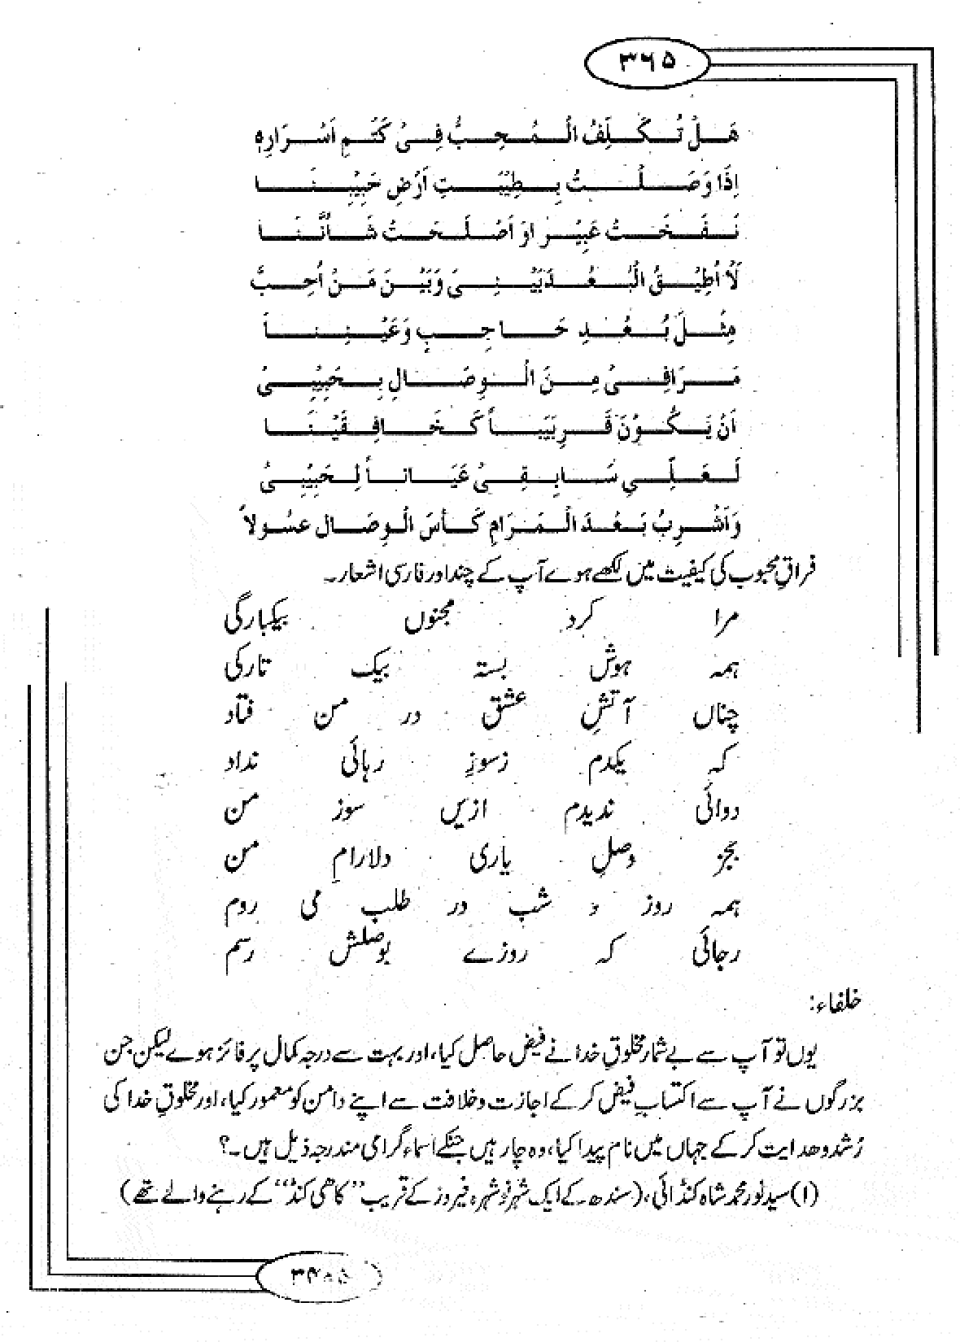 ۳۶۵
هَلْ تُکَلِّفُ الْمُحِبُّ فِیْ کَتْمِ اَسْرَارِہٖ
اِذَا وَصَلْتُ بِطِیْبَتِ اَرْضِ حَبِیْبِنَا
نَفَخَتْ عَبِیْر اوْ اَصْلَحَتْ شَأْنَنَا
لَاْ اُطِیْقُ الْبُعْدَ بَیْنِیْ وَبَیْنَ مَنْ اُحِبُّ
مِثْلَ بُعْدِ حَاجِبٍ وَعَیْنِنَا
مَرَافِیْ مِنَ الْوِصَالِ بِحَبِیْبِیْ
اَنْ یَکُوْنَ قَرِیْبَاً کَخَافِقَیْنَا
لَعَلِّی سَابِقِیْ عَیَاناً لِحَبِیْبِیْ
وَاَشْرِبُ بَعْدَ الْمَرَامِ کَأسَ الْوِصَالِ عسُولاً
فراقِ محبوب کی کیفیت میں لکھے ہوے آپ کے چند اور فارسی اشعار۔
مرا کرد مجنوں بیکبارگی
ہمہ ہوش بستہ بیک تارکی
چناں آتشِ عشق در من فتاد
کہ یکدم زسوزِ رہائی نداد
دوائی ندیدم ازیں سوز من
بجز وصلِ یاری دلارامِ من
ہمہ روز و شب در طلب می روم
رجائی کہ روزے بوصلش رسم
خلفاء:
یوں تو آپ سے بے شمار مخلوقِ خدا نے فیض حاصل کیا، اور بہت سے درجہ کمال پر فائز ہوے لیکن جن
بزرگوں نے آپ سے اکتسابِ فیض کر کے اجازت و خلافت سے اپنے دامن کو معمور کیا، اور مخلوقِ خدا کی
رُشد و ھدایت کر کے جہاں میں نام پیدا کیا، وہ چار ہیں جنکے اسماءِ گرامی مندرجہ ذیل ہیں۔؟
(۱) سید نور محمد شاہ کنڈائی، (سندھ کے ایک شہر نوشہرہ فیروز کے قریب "کاھی کنڈ" کے رہنے والے تھے)